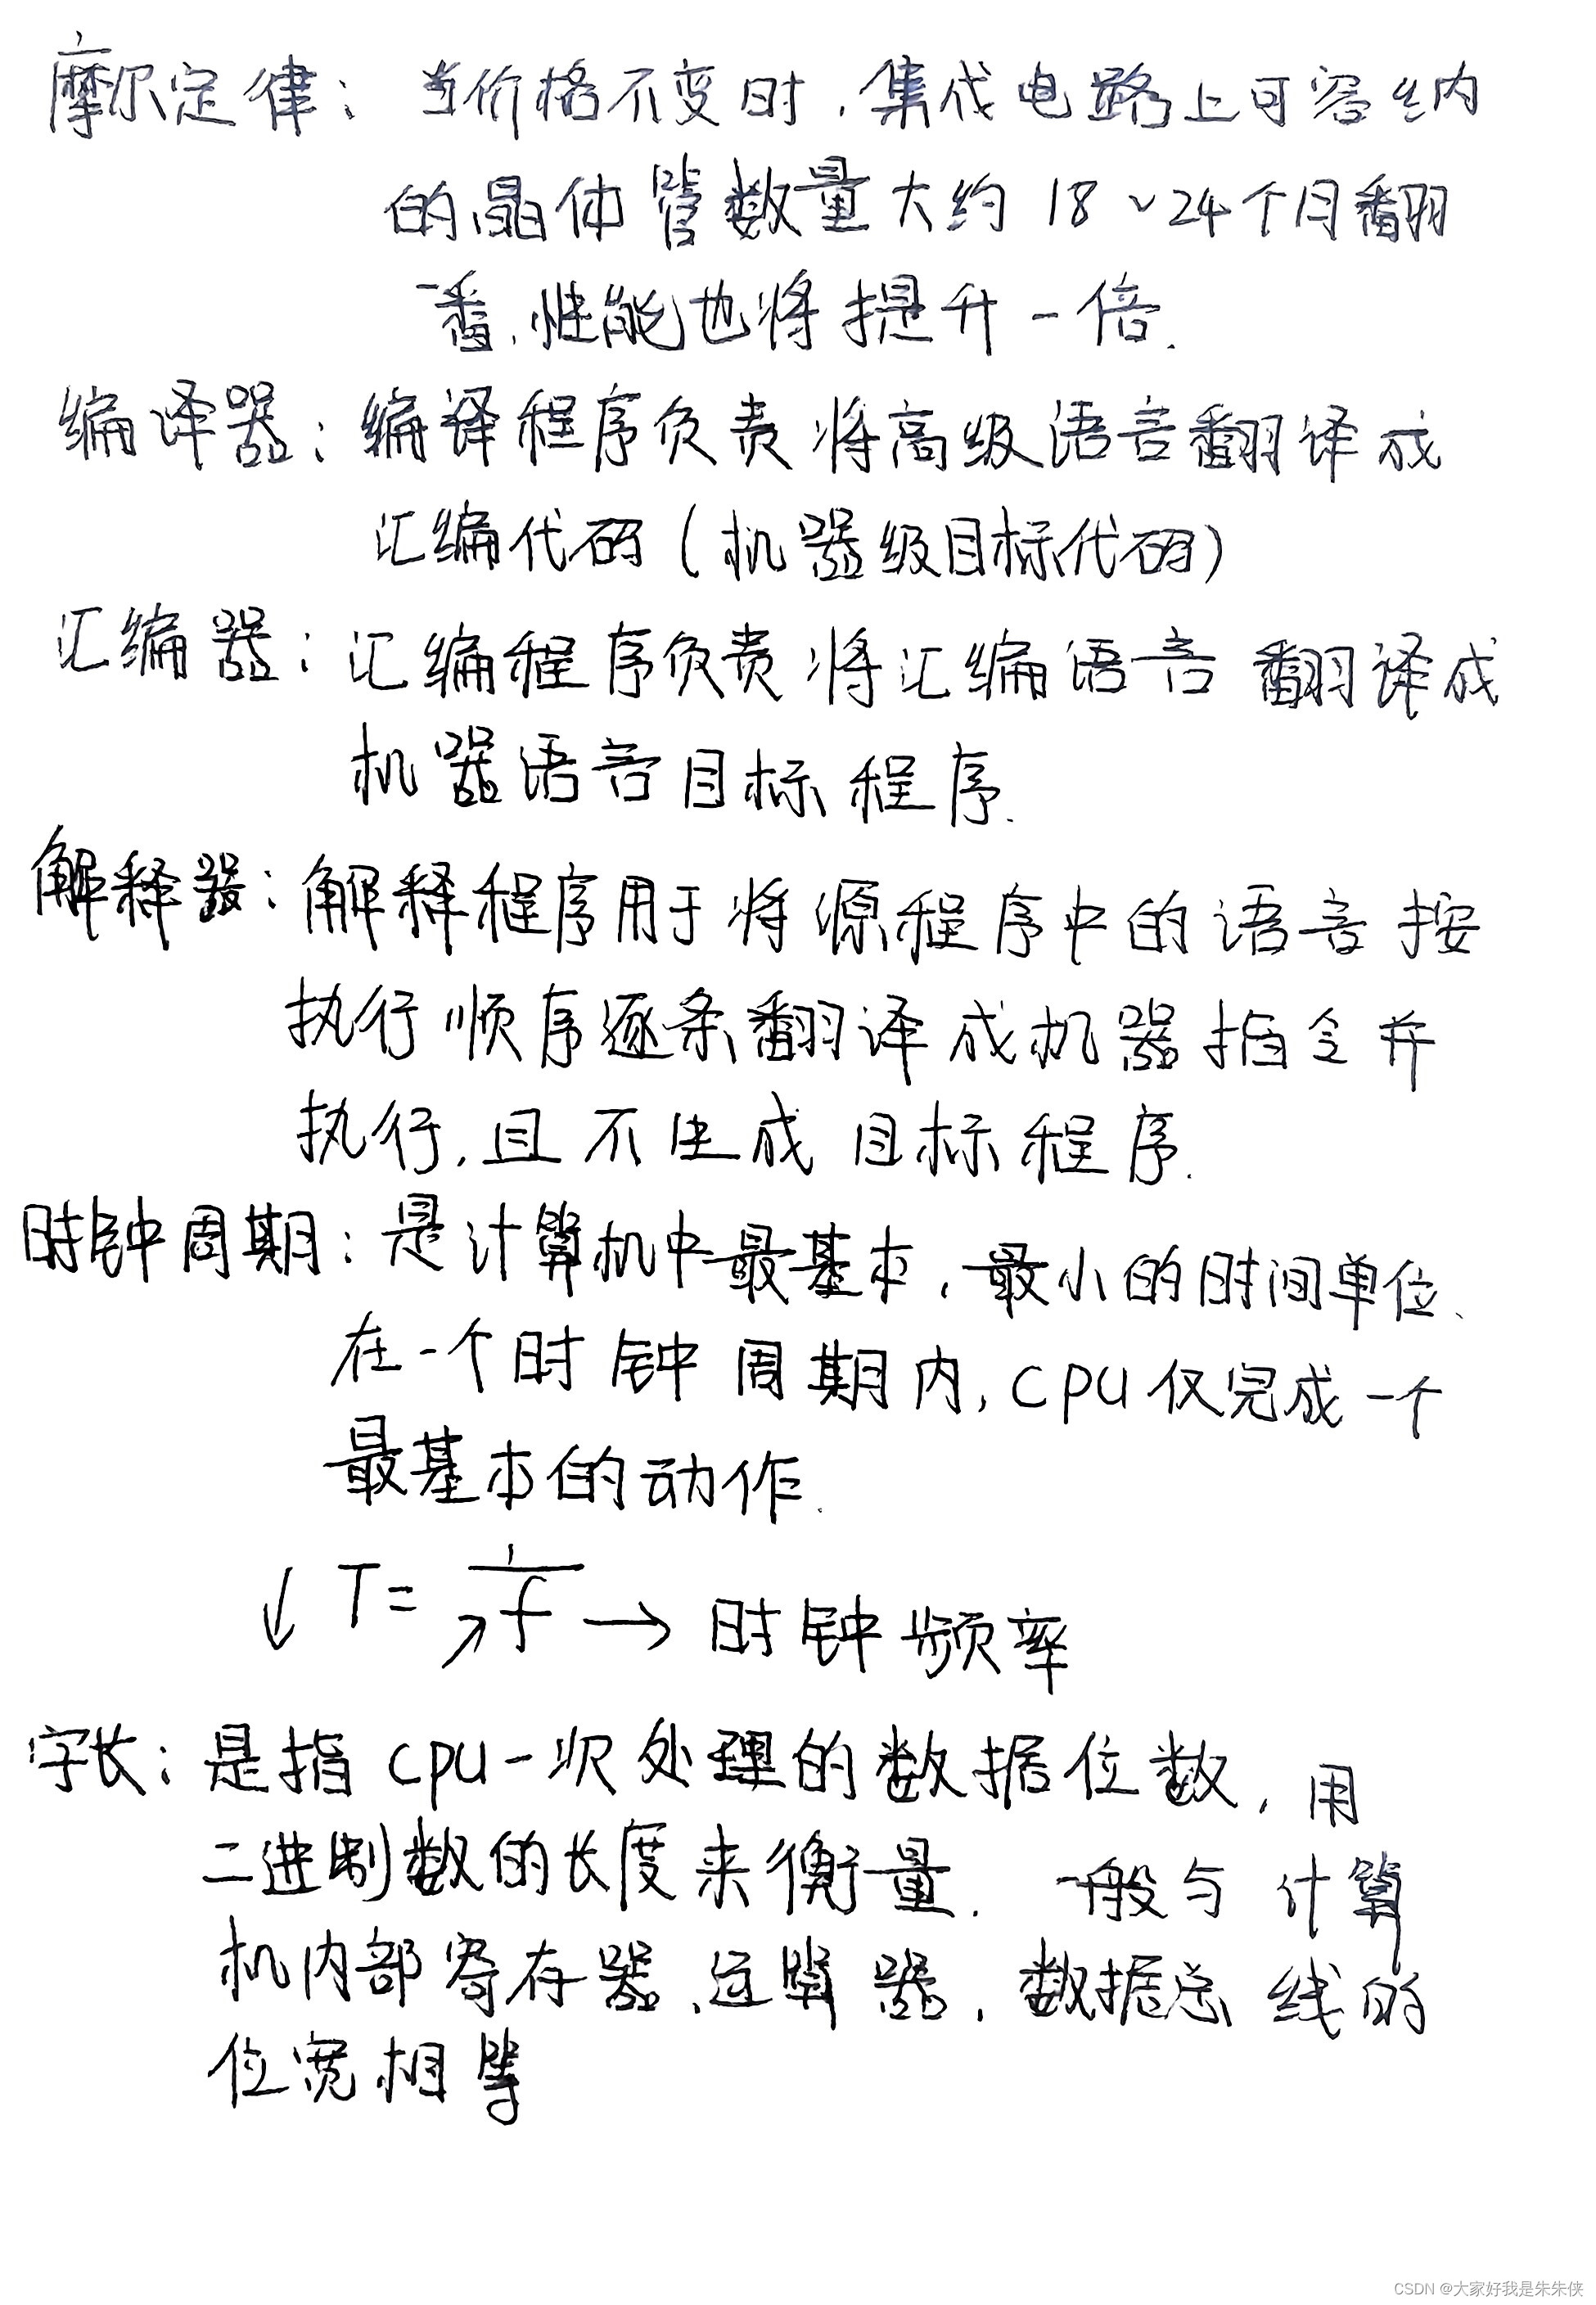 摩尔定律：当价格不变时，集成电路上可容纳
的晶体管数量大约18~24个月翻
一番，性能也将提升一倍.
编译器：编译程序负责将高级语言翻译成
汇编代码（机器级目标代码）
汇编器：汇编程序负责将汇编语言翻译成
机器语言目标程序.
解释器：解释程序用于将源程序中的语言按
执行顺序逐条翻译成机器指令并
执行，且不生成目标程序.
时钟周期：是计算机中最基本，最小的时间单位、
在一个时钟周期内，CPU仅完成一个
最基本的动作.
↓ T = 1/↗f → 时钟频率
字长：是指CPU一次处理的数据位数，用
二进制数的长度来衡量. 一般与计算
机内部寄存器、运算器，数据总线的
位宽相等
CSDN @大家好我是朱朱侠